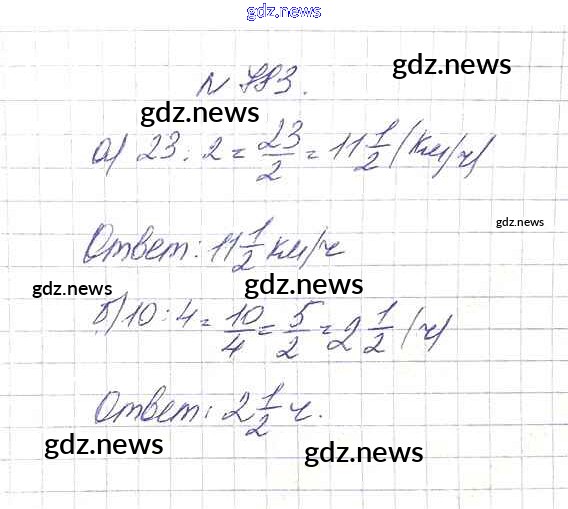 gdz.news
gdz.news
N 883.
gdz.news
а) 23 : 2 = 23/2 = 11 1/2 (км/ч)
gdz.news
Ответ: 11 1/2 км/ч
gdz.news
gdz.news
б) 10 : 4 = 10/4 = 5/2 = 2 1/2 (ч)
Ответ: 2 1/2 ч.
gdz.news
gdz.news